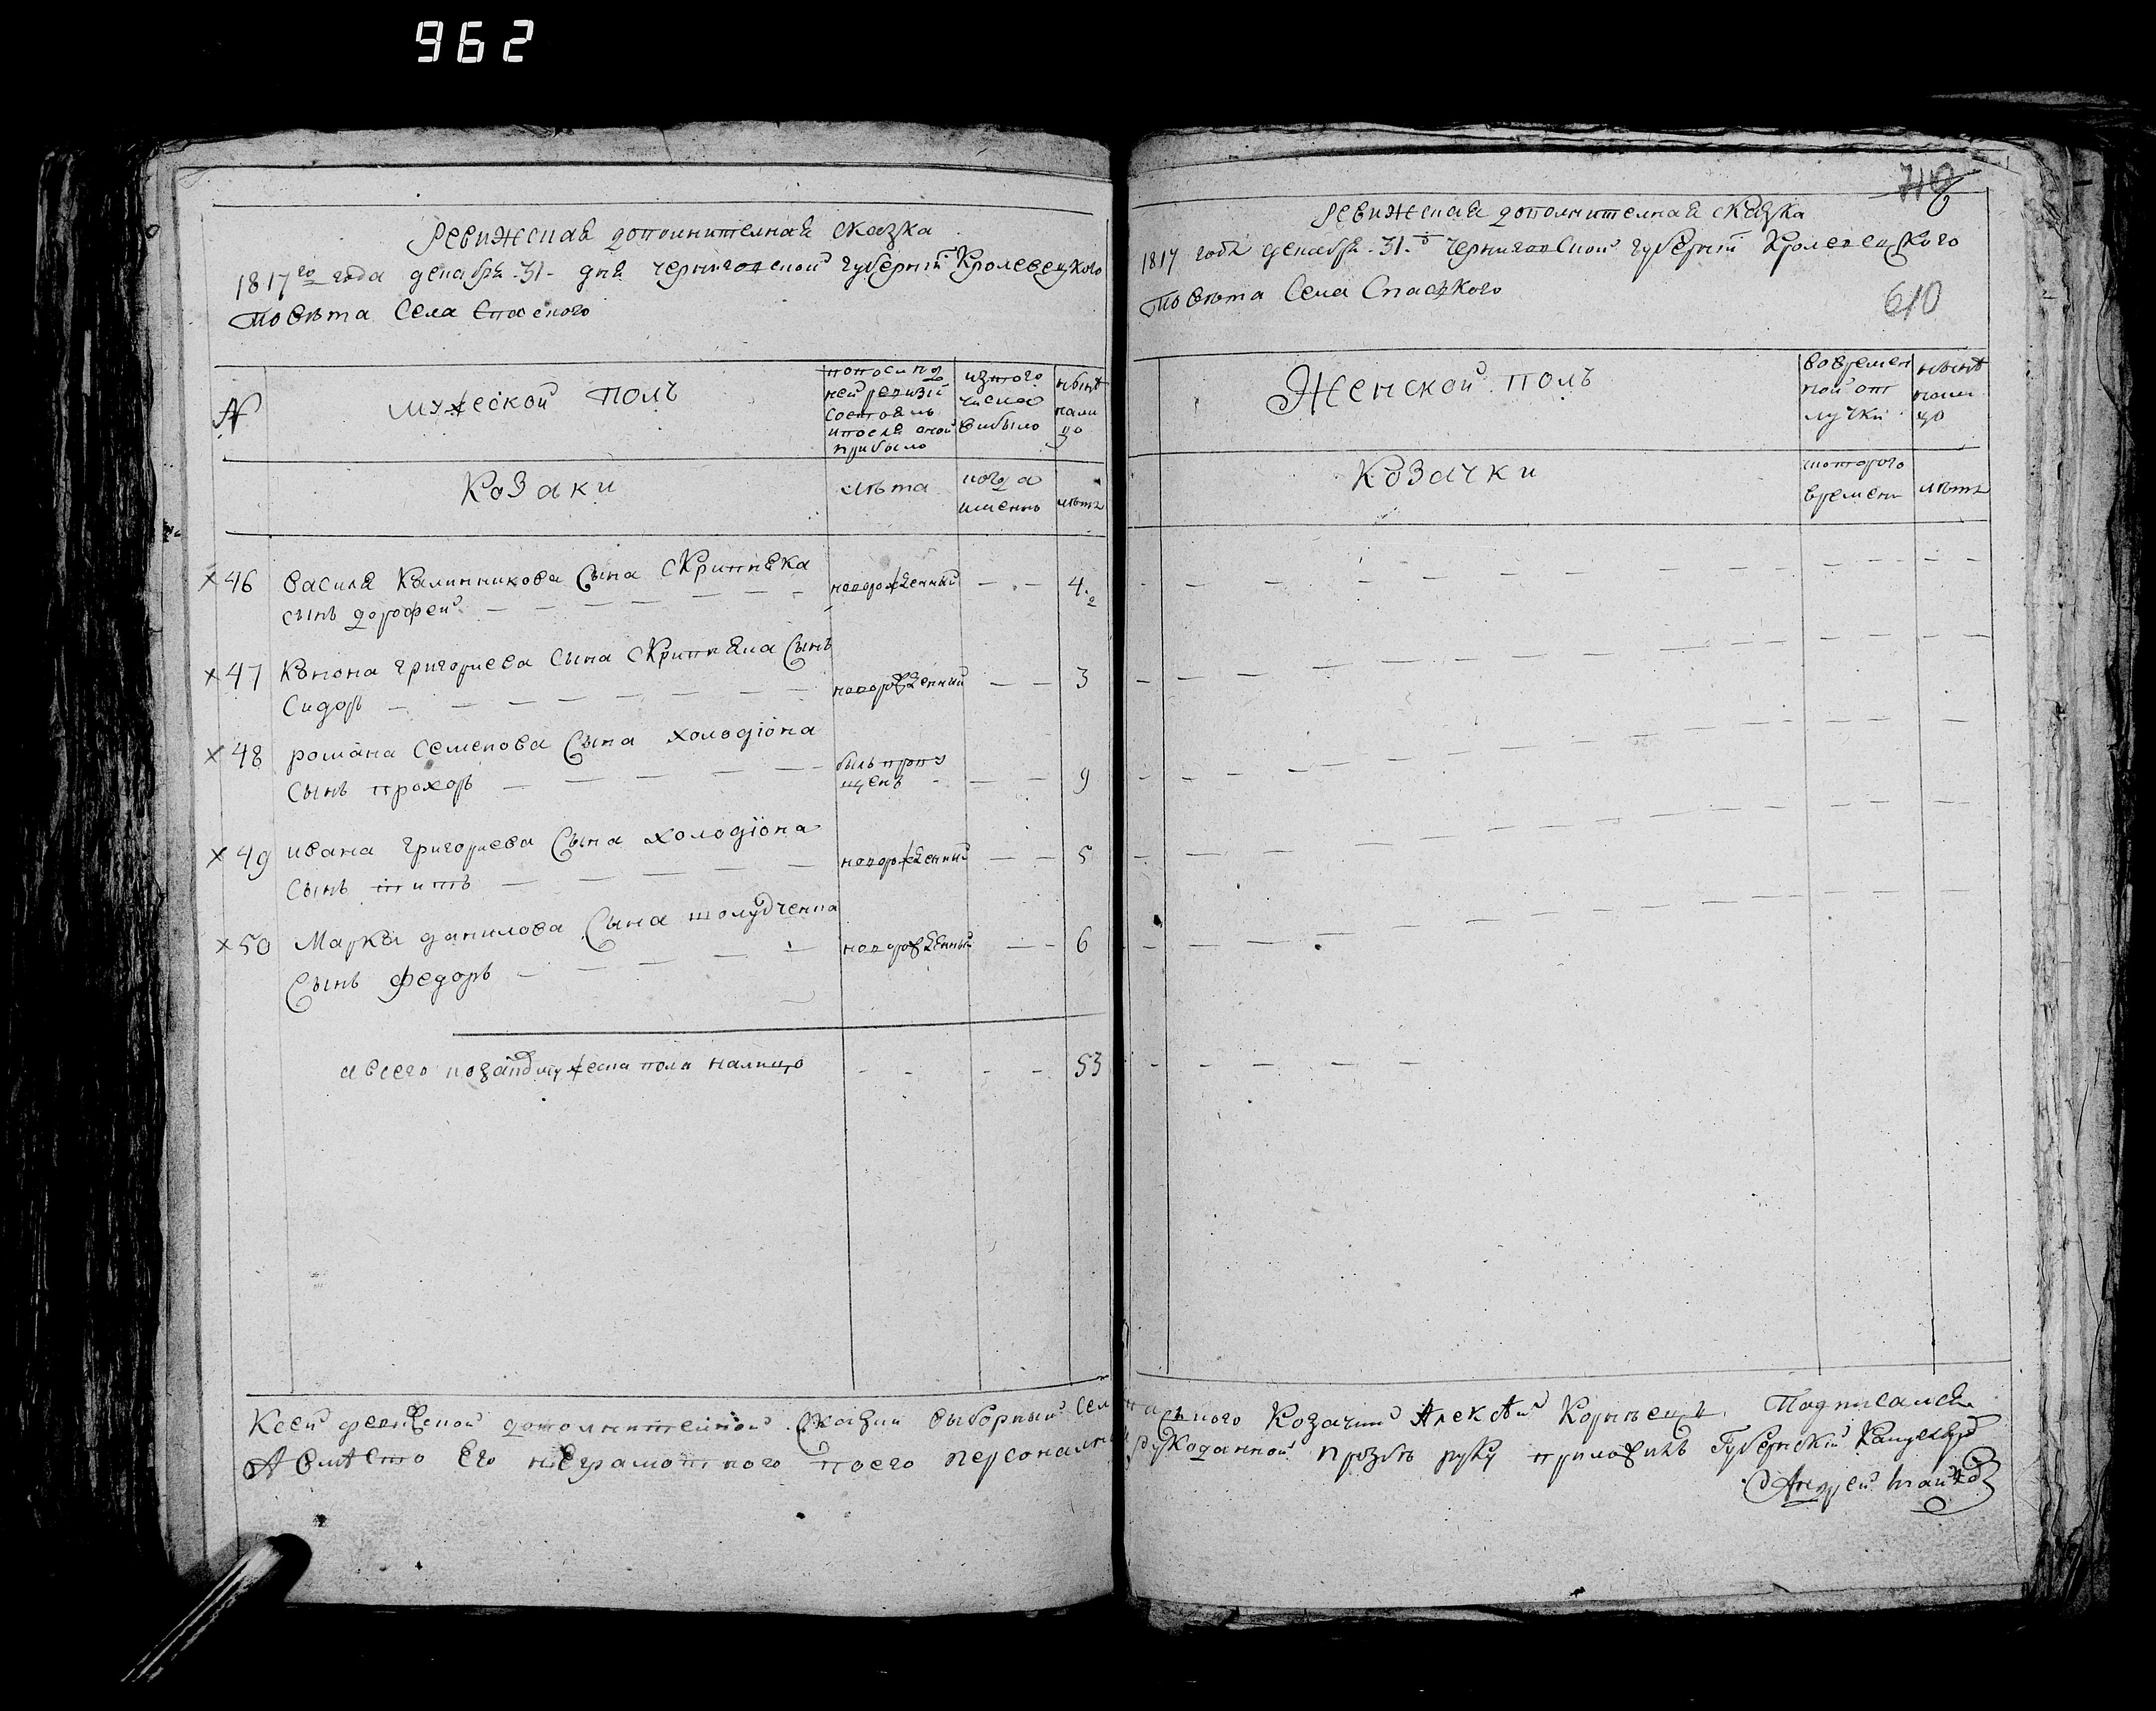 962
Ревижская дополнителная сказка
1817го года декабря 31 дня черниговской губерныи Кролевецкого
повета Села Спаского
№
мужеской полъ
попоследней ревизіи состоялъ и после оной прибыло
изтого числа выбыло
ныне налицо
Козаки
лета
когда именно
лета
46 Василя Калинникова Сына Скрипняка
сынъ дорофей новорожденный 4
47 Конона григориева Сына Скрипняка Сынъ
Сидоръ новорожденный 3
48 романа Семенова Сына холодіона
Сынъ прохоръ былъ пропущенъ 9
49 ивана григориева Сына холодіона
Сынъ титъ новорожденный 5
50 Марка данилова Сына
Сынъ федоръ новорожденный 6
налицо 53
710
Ревижская дополнителная сказка
1817 года декабря 31 черниговской губерныи Кролевецкого
повета Села Спаского
610
Женской полъ
вовременной отлучки
ныне налицо
Козачки
которого времени
лета
Ксей ревижской дополнителной Сказки выборный Села Спаского Козачий Алексей Подписался
А вместо Его неграмотного поего персоналной рукоданной прозбе руку приложилъ Губернскій
Андрей